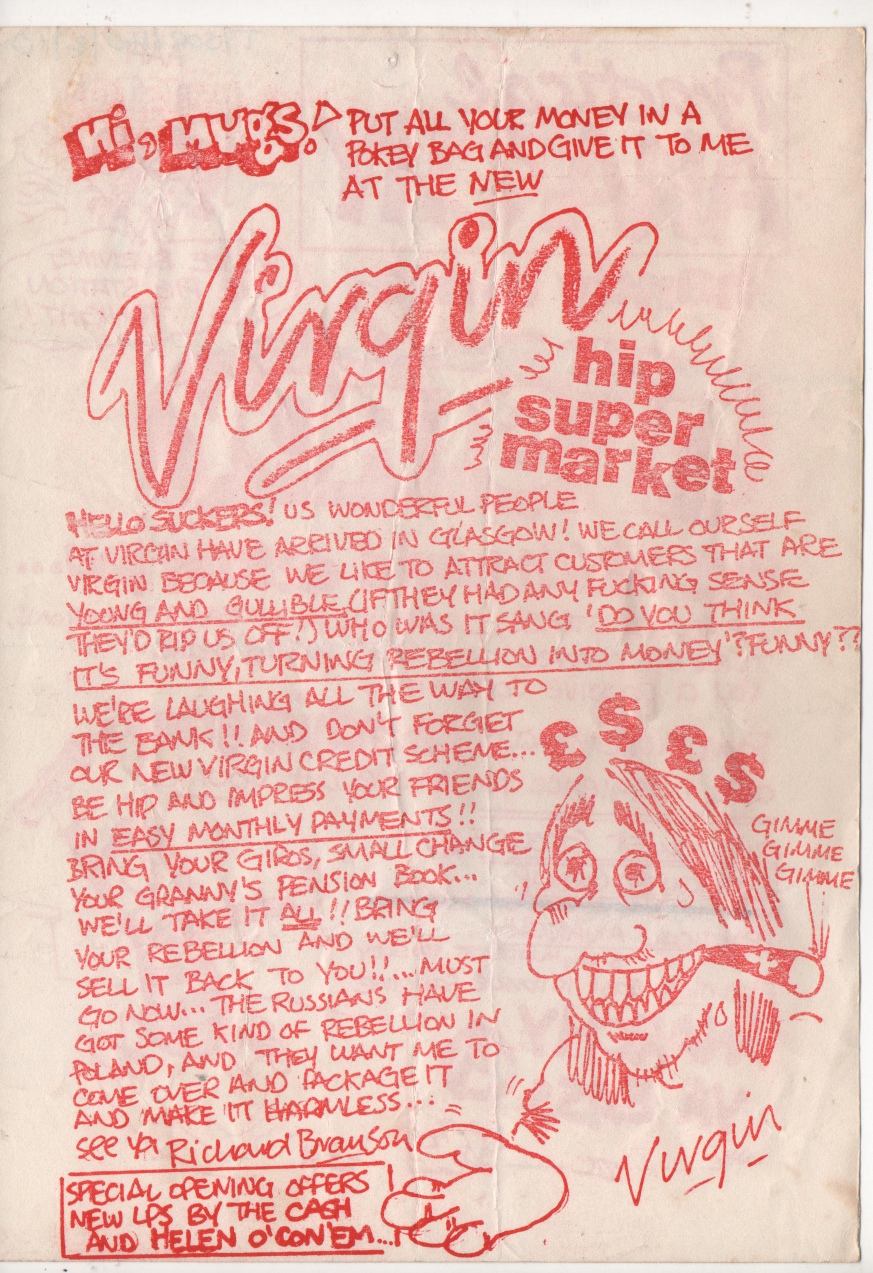 Hi, Mugs! PUT ALL YOUR MONEY IN A
POKEY BAG AND GIVE IT TO ME
AT THE NEW
Virgin
hip
super
market
HELLO SUCKERS! US WONDERFUL PEOPLE
AT VIRGIN HAVE ARRIVED IN GLASGOW! WE CALL OURSELF
VIRGIN BECAUSE WE LIKE TO ATTRACT CUSTOMERS THAT ARE
YOUNG AND GULLIBLE, (IF THEY HAD ANY FUCKING SENSE
THEY'D RIP US OFF!) WHO WAS IT SANG 'DO YOU THINK
IT'S FUNNY, TURNING REBELLION INTO MONEY'? FUNNY??
WE'RE LAUGHING ALL THE WAY TO
THE BANK!! AND DON'T FORGET
OUR NEW VIRGIN CREDIT SCHEME...
BE HIP AND IMPRESS YOUR FRIENDS
IN EASY MONTHLY PAYMENTS!!
BRING YOUR GIROS, SMALL CHANGE
YOUR GRANNY'S PENSION BOOK...
WE'LL TAKE IT ALL!! BRING
YOUR REBELLION AND WE'LL
SELL IT BACK TO YOU!!... MUST
GO NOW... THE RUSSIANS HAVE
GOT SOME KIND OF REBELLION IN
POLAND, AND THEY WANT ME TO
COME OVER AND PACKAGE IT
AND MAKE IT HARMLESS...
see ya Richard Branson
SPECIAL OPENING OFFERS
NEW LPS BY THE CA$H
AND HELEN O'CON'EM...!
£ $ £ $
GIMME
GIMME
GIMME
Virgin